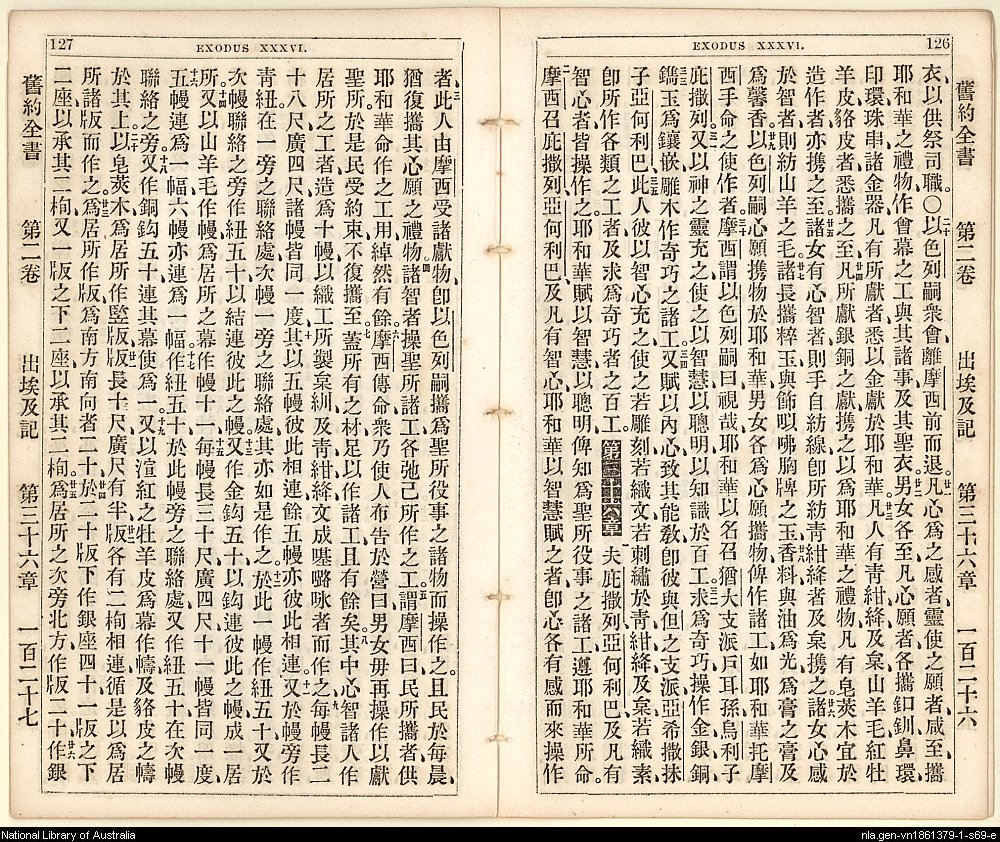 126
EXODUS XXXVI.
舊約全書 第二卷 出埃及記 第三十六章 一百二十六
衣、以供祭司職。〇以色列嗣衆會離摩西前而退。凡心爲之感者、靈使之願者、咸至、攜
耶和華之禮物、作會幕之工、與其諸事及其聖衣。男女各至、凡心願者、各攜釦釧鼻環
印環珠串諸金器、凡有所獻者、悉以金獻於耶和華。凡人有靑紺絳及枲山羊毛紅牡
羊皮貉皮者、悉攜之至。凡所獻銀銅之獻、攜之以爲耶和華之禮物、凡有皂莢木宜於
造作者、亦攜之至。諸女有心智者、則手自紡線、卽所紡靑紺絳者及枲攜之。諸女心感
於智者、則紡山羊之毛。諸長攜粹玉、與飾咈胸牌之玉、香料與油爲光、爲膏之膏、及
爲馨香。以色列嗣心願攜物於耶和華、男女各爲心願攜物、俾作諸工、如耶和華托摩
西手命之使作者。摩西謂以色列嗣曰、視哉、耶和華以名召猶大支派戶耳孫烏利子
庇撒列。又以神之靈充之、使之以智慧以聰明、以知識於百工。求爲奇巧、操作金銀銅、
鐫玉爲鑲嵌、雕木作奇巧之諸工。又賦以內心致其能教、卽彼與但之支派亞希撒抹
子亞何利巴。此人彼以智心充之、使之若雕刻、若織文、若刺繡、於靑紺絳及枲、若織素、
卽所作各類之工者、及求爲奇巧者之百工。第三十六章 夫庇撒列亞何利巴、及凡有
智心者、皆操作之、耶和華賦以智慧以聰明、俾知爲聖所役事之諸工、遵耶和華所命。
摩西召庇撒列亞何利巴、及凡有智心、耶和華以智慧賦之者、卽心各有感而來操作
127
EXODUS XXXVI.
者、此人由摩西受諸獻物、卽以色列嗣攜爲聖所役事之諸物而操作之。且民於每晨、
猶復攜其心願之禮物。諸智者操聖所諸工、各弛己所作之工。謂摩西曰、民所攜者、供
耶和華命作之工用、綽然有餘。摩西傳命衆、乃使人布告於營曰、男女毋再操作以獻
聖所。於是民受約束、不復攜至。蓋所有之材、足以作諸工、且有餘矣。其中心智諸人、作
居所之工者、造爲十幔、以織工所製枲紃、及靑紺絳、文成𡀔㖼咏者而作之。每幔長二
十八尺、廣四尺、諸幔皆同一度。其以五幔彼此相連、餘五幔亦彼此相連。又於幔旁作
靑紐、在一旁之聯絡處、次幔一旁之聯絡處、其亦如是作之。於此一幔作紐五十、又於
次幔聯絡之旁作紐五十、以結連彼此之幔。又作金鈎五十、以鈎連彼此之幔、成一居
所。又以山羊毛作幔、爲居所之幕、作幔十一。每幔長三十尺、廣四尺、十一幔皆同一度。
五幔連爲一幅、六幔亦連爲一幅。作紐五十、於此幔旁之聯絡處、又作紐五十、在次幔
聯絡之旁。又作銅鈎五十、連其幕使爲一。又以渲紅之牡羊皮爲幕作幬、及貉皮之幬
於其上。以皂莢木爲居所作竪版。版長十尺、廣尺有半。版各有二枸相連、循是以爲居
所諸版而作之。爲居所作版、爲南方南向者二十。於二十版下、作銀座四十、一版之下
二座、以承其二枸、又一版之下二座、以承其二枸。爲居所之次旁北方、作版二十。作銀
舊約全書 第二卷 出埃及記 第三十六章 一百二十七
National Library of Australia
nla.gen-vn1861379-1-s69-e